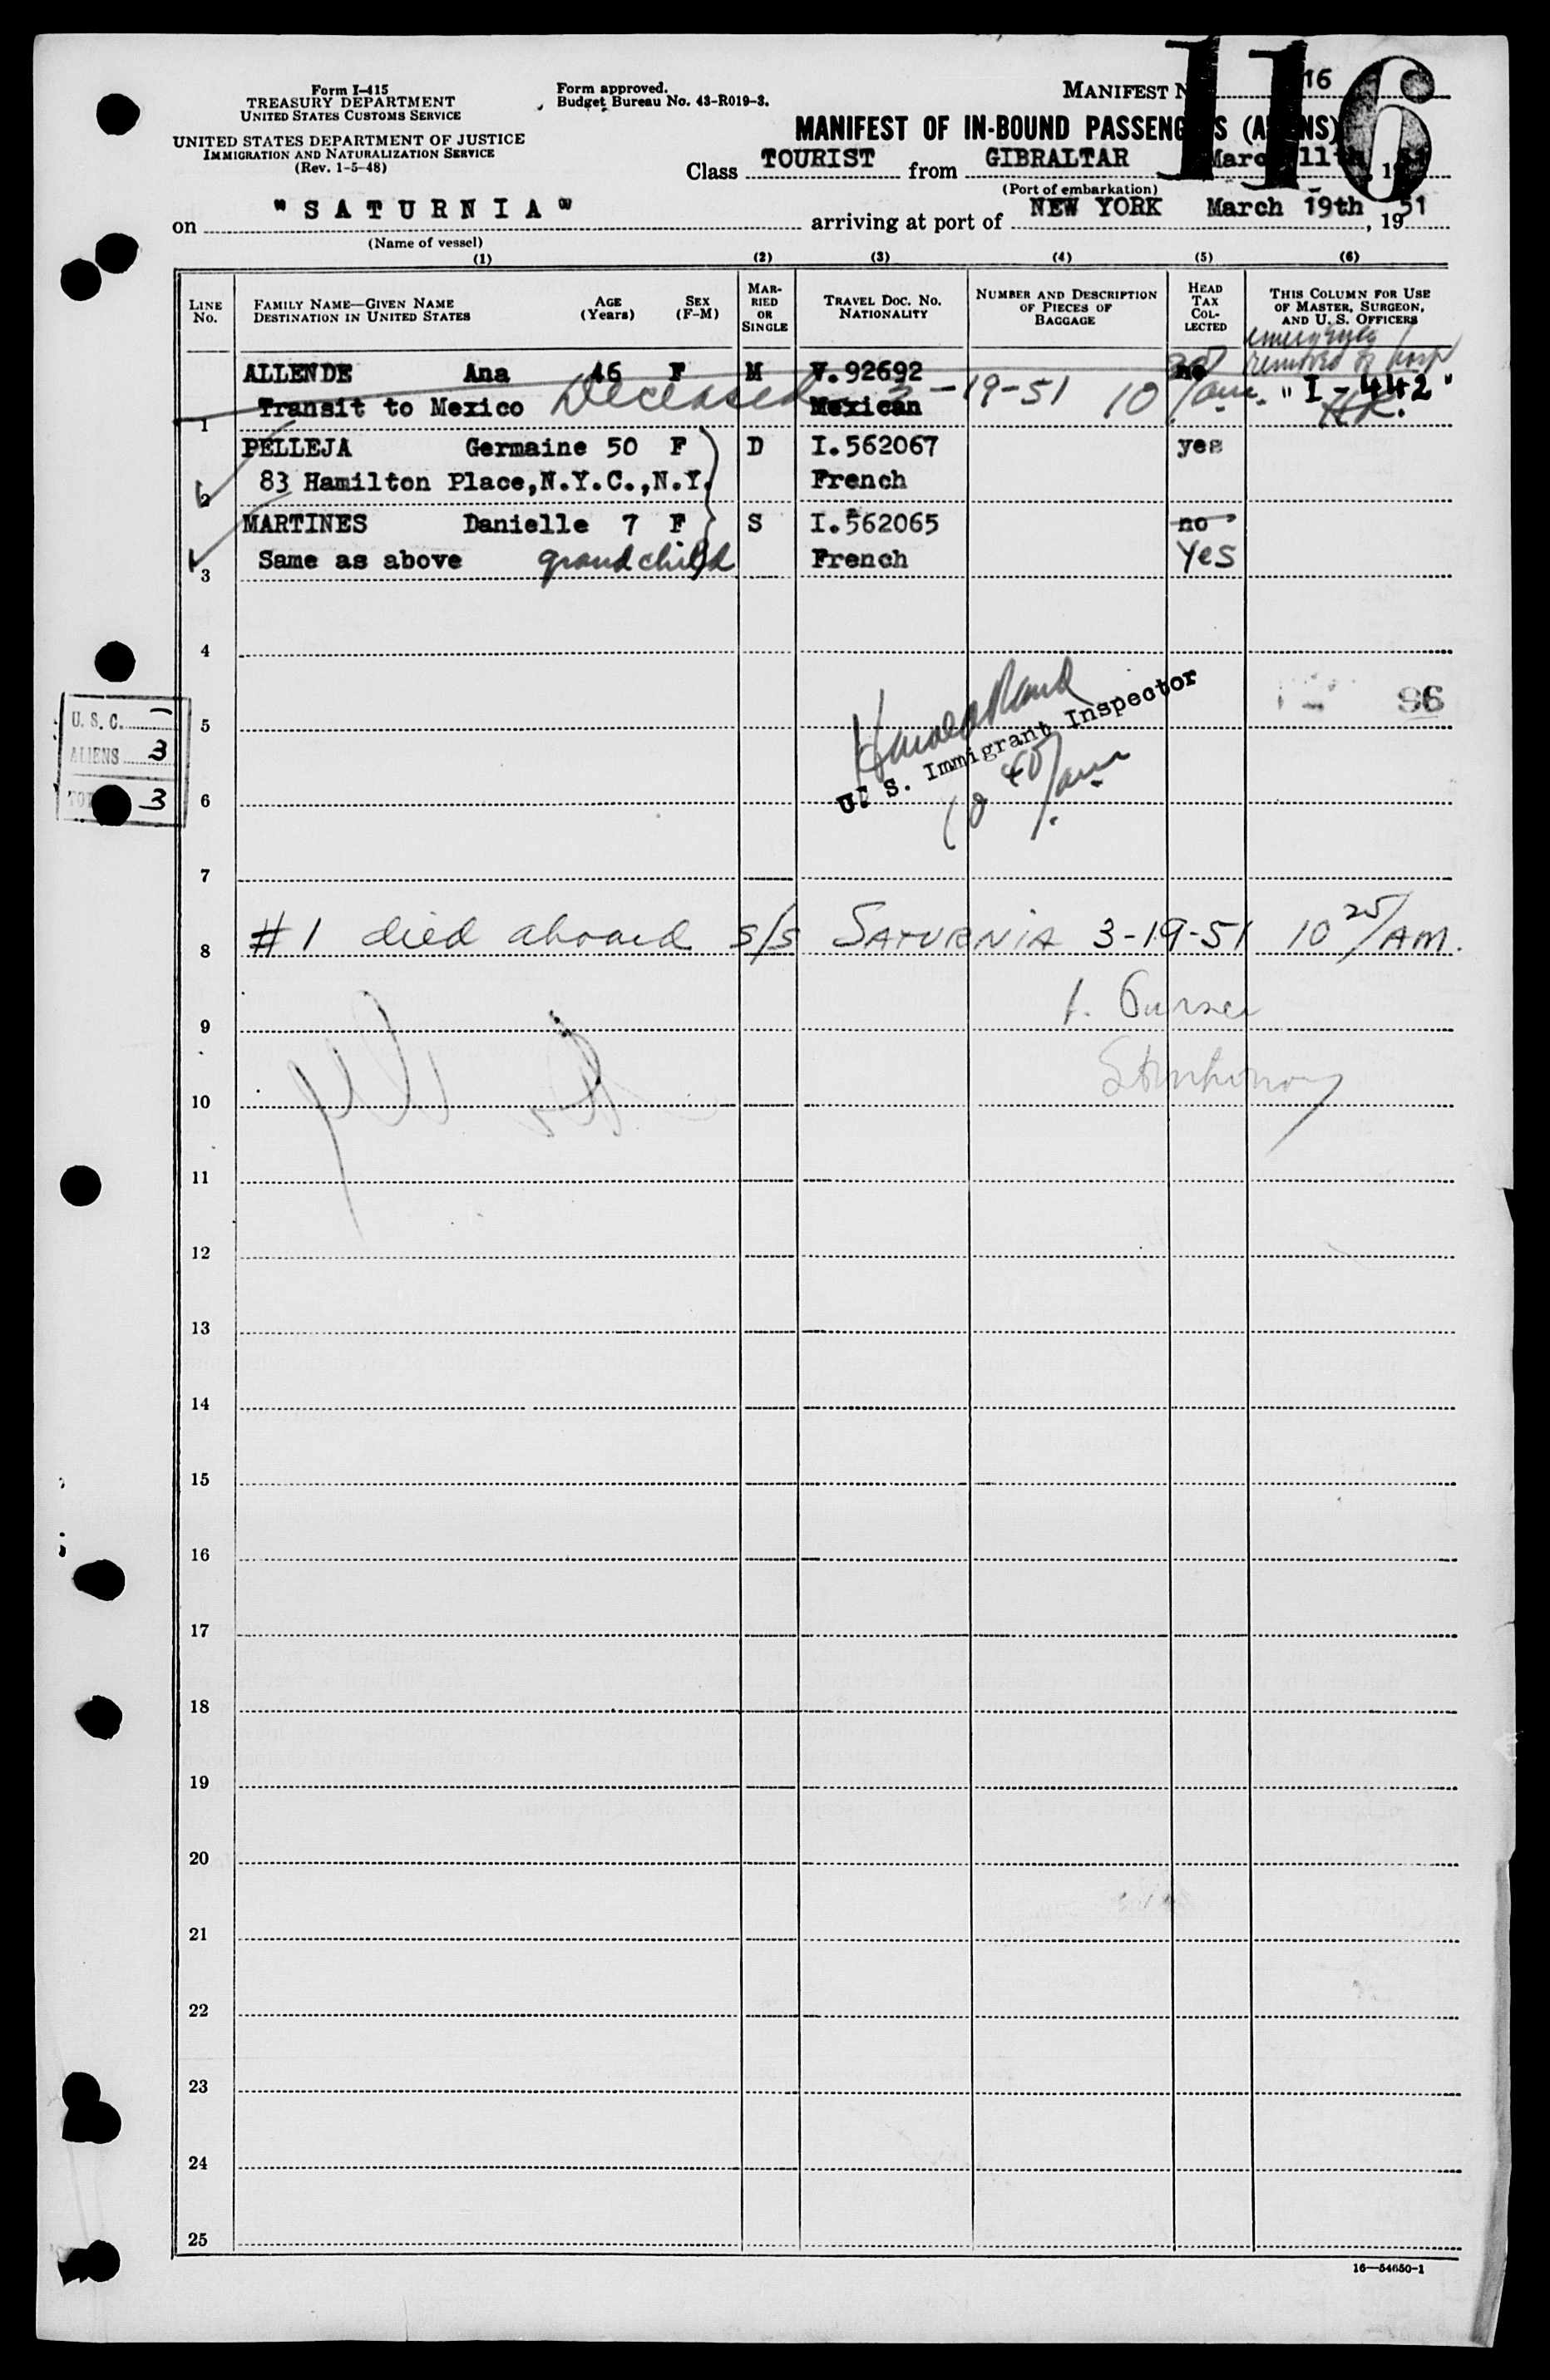 116
Form I-415
TREASURY DEPARTMENT
UNITED STATES CUSTOMS SERVICE
UNITED STATES DEPARTMENT OF JUSTICE
IMMIGRATION AND NATURALIZATION SERVICE
(Rev. 1-5-48)
Form approved.
Budget Bureau No. 43-R019-3.
MANIFEST N 16
MANIFEST OF IN-BOUND PASSENGERS (ALIENS)
Class TOURIST from GIBRALTAR March 11th, 1951
(Port of embarkation)
on "SATURNIA" arriving at port of NEW YORK March 19th, 1951
(Name of vessel)
(1) (2) (3) (4) (5) (6)
LINE No.
FAMILY NAME—GIVEN NAME
DESTINATION IN UNITED STATES
AGE (Years)
SEX (F-M)
MARRIED OR SINGLE
TRAVEL DOC. NO.
NATIONALITY
NUMBER AND DESCRIPTION OF PIECES OF BAGGAGE
HEAD TAX COLLECTED
THIS COLUMN FOR USE OF MASTER, SURGEON, AND U. S. OFFICERS
emergency
removed to hosp
ALLENDE Ana 46 F M V.92692 no
1 Transit to Mexico Deceased 3-19-51 10 25/am. Mexican "I-442"
HR.
PELLEJA Germaine 50 F D I.562067 yes
2 83 Hamilton Place,N.Y.C.,N.Y. French
MARTINES Danielle 7 F S I.562065 no
3 Same as above grandchild French Yes
4
96
U. S. C. –
ALIENS 3
3
5
U. S. Immigrant Inspector
10 40/am
6
7
8 #1 died aboard s/s SATURNIA 3-19-51 10 25/AM.
9 1. Purser
10
11
12
13
14
15
16
17
18
19
20
21
22
23
24
25
16—54650-1